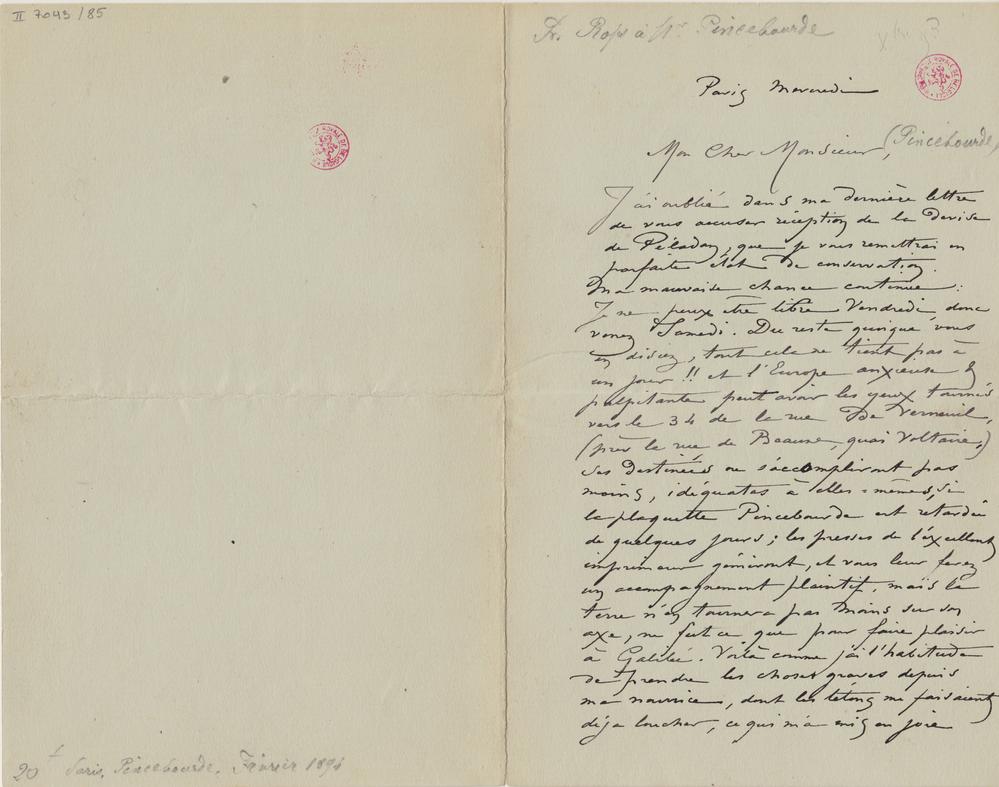 II 7043 / 85
20 Paris, Pincebourde. Février 189
F. Rops à Mr Pincebourde
BIBLIOTHÈQUE ROYALE DE BELGIQUE
Paris Mercredi
Mon Cher Monsieur, (Pincebourde)
J'ai oublié dans ma dernière lettre
de vous accuser réception de la Devise
de Péladan, que je vous remettrai en
parfaite état de conservation.
Ma mauvaise chance continue:
Je ne peux être libre Vendredi donc
venez Samedi. Du reste quoique vous
en disiez, tout cela ne tient pas à
un jour!! et l'Europe anxieuse &
palpitante peut avoir les yeux tournés
vers le 34 de la rue De Verneuil,
(près la rue de Beaune, quai Voltaire,)
ses destinées ne s'accompliront pas
moins, idéquates à elles-mêmes, si
la plaquette Pincebourde est retardée
de quelques jours; les presses de l'excellent
imprimeur gémiront, et vous leur ferez
un accompagnement plaintif, mais la
terre n'en tournera pas moins sur son
axe, ne fut ce que pour faire plaisir
à Galilée. Voilà comme j'ai l'habitude
de prendre les choses graves depuis
ma nourrice, dont les tétons me faisaient
déja loucher, ce qui m'a mis en joie